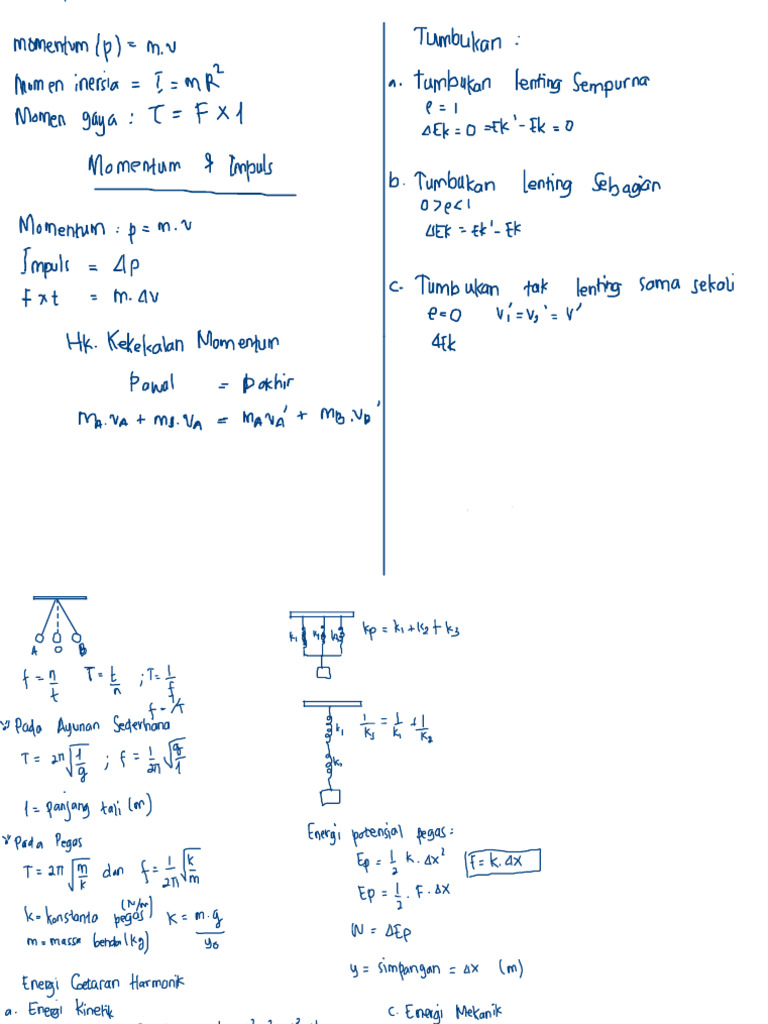 momentum (p) = m.v
Momen inersia = I = mR²
Momen gaya : τ = F x l
Momentum & Impuls
Momentum : p = m.v
Impuls = Δp
F x t = m.Δv
Hk. Kekekalan Momentum
Pawal = pakhir
mA.vA + mB.vA = mA vA' + mB.vB'
Tumbukan :
a. Tumbukan lenting Sempurna
e = 1
ΔEk = 0 = Ek' - Ek = 0
b. Tumbukan lenting Sebagian
0 > e < 1
ΔEk = Ek' - Ek
c. Tumbukan tak lenting sama sekali
e = 0 v₁' = v₂' = v'
ΔEk
A O B
f = n/t T = t/n ; T = 1/f
f = 1/T
Pada Ayunan Sederhana
T = 2π√(l/g) ; f = 1/2π √(g/l)
l = panjang tali (m)
Pada Pegas
T = 2π√(m/k) dan f = 1/2π √(k/m)
k = konstanta pegas (N/m) K = m.g/y₀
m = massa benda (kg)
Energi Getaran Harmonik
a. Energi Kinetik
k₁ k₂ kp = k₁ + k₂ + k₃
k₁ 1/ks = 1/k₁ + 1/k₂
Energi potensial pegas :
Ep = 1/2 k.Δx² F = k.Δx
Ep = 1/2 . F.Δx
W = ΔEp
y = simpangan = Δx (m)
c. Energi Mekanik